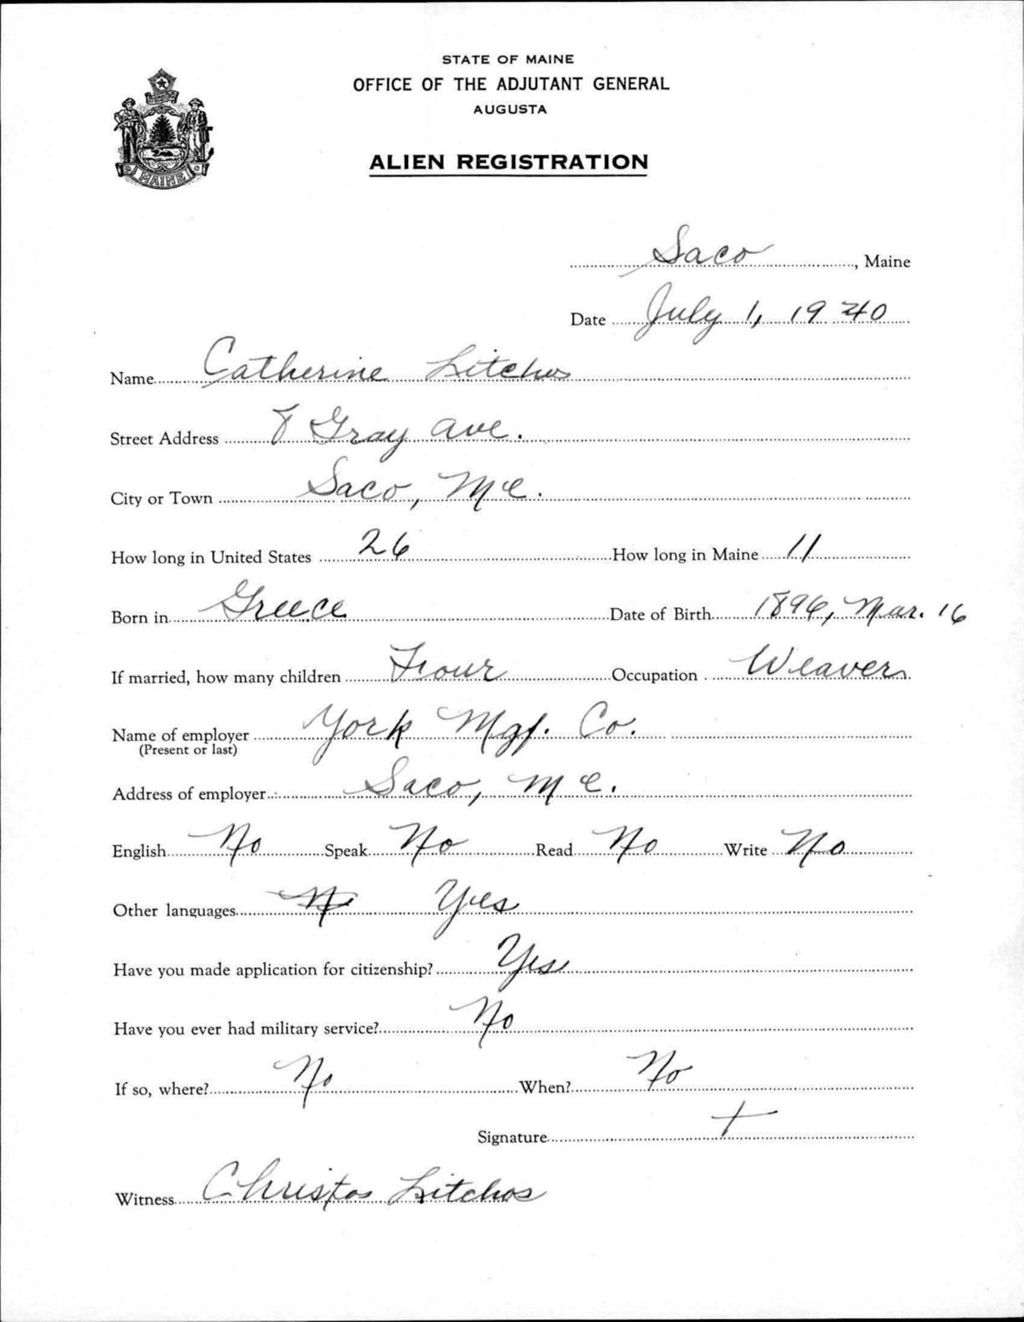 STATE OF MAINE
OFFICE OF THE ADJUTANT GENERAL
AUGUSTA
ALIEN REGISTRATION
MAINE
Saco, Maine
Date July 1, 1940
Name Catherine Litchos
Street Address 8 Gray Ave.
City or Town Saco, Me.
How long in United States 26 How long in Maine 11
Born in Greece Date of Birth 1896, Mar. 16
If married, how many children Four Occupation Weaver
Name of employer York Mgf. Co.
(Present or last)
Address of employer Saco, Me.
English No Speak No Read No Write No
Other languages No Yes
Have you made application for citizenship? Yes
Have you ever had military service? No
If so, where? No When? No
Signature +
Witness Christos Litchos